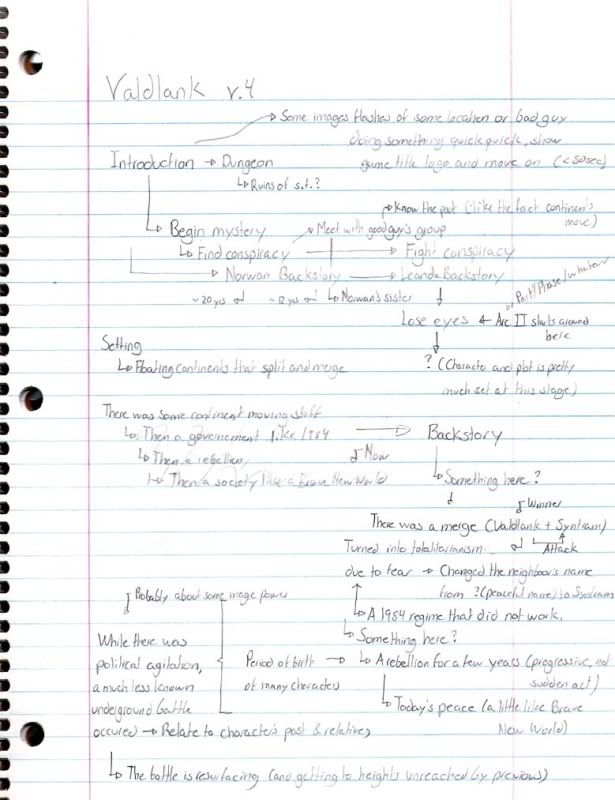 Valdlank v.4
→ Some images flashes of some location or bad guy
doing something quick quick, show
game title logo and move on (<30sec)
Introduction → Dungeon
↳ Ruins of s.t.?
→ Know the past (like the fact continents
move)
↳ Begin mystery → Meet with good guy's group
↳ Find conspiracy → Fight conspiracy
→ Norwan Backstory → Leanda Backstory
~20 yrs ~12 yrs ↳ Norwan's sister
or Part/Phase/whatever
Lose eyes ← Arc II starts around
here
Setting
↳ Floating continents that split and merge
? (Characte and plot is pretty
much set at this stage)
There was some continent moving stuff
↳ Then a governement like 1984 → Backstory
↳ Then a rebellion Now
↳ Then a society like a Brave New World
↳ Something here?
Winner
There was a merge (Valdlank + Syntram)
Attack
Turned into totalitarianism
due to fear → Changed the neighboor's name
from ? (peaceful name) to Syntram
↳ A 1984 regime that did not work.
↳ Something here?
Probably about some magic power
While there was
political agitation,
a much less known
underground battle
occured → Relate to character's past & relatives
Period of birth → ↳ A rebellion for a few years (progressive, not
of many characters sudden act)
↳ Today's peace (a little like Brave
New World)
↳ The battle is resurfacing (and getting to heights unreached by previous)